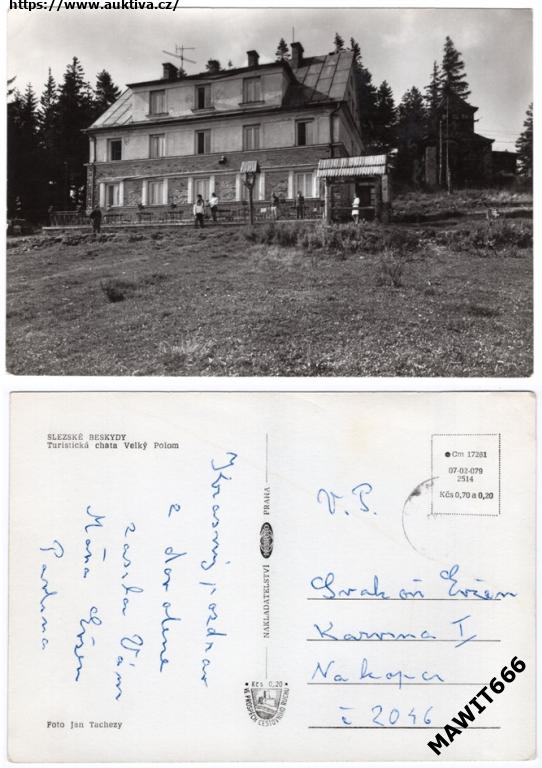 https://www.auktiva.cz/
SLEZSKÉ BESKYDY
Turistická chata Velký Polom
Krásný pozdrav
z dovolené
zasílá Vám
Máňa Evžen
Pavlína
Foto Jan Tachezy
NAKLADATELSTVÍ PRAHA
Kčs 0,20
VE PROSPĚCH CESTOVNÍHO RUCHU
Cm 17281
07-02-079
2514
Kčs 0,70 a 0,20
V. P.
Evžen
Karvina I
Na kopci
č 2046
MAWIT666